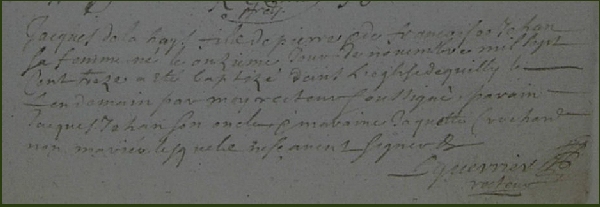 Jacques de la haye fils de pierre et de francoise Johan
sa femme né le onzieme jour de novembre mil sept
cent treze a esté baptizé dans leglise de quilly le
landemain par moy recteur soussigné parain
Jacques Johan son oncle et maraine Jaquette Crochard
non mariee lesquels ne scavent signer
L guerrier
recteur